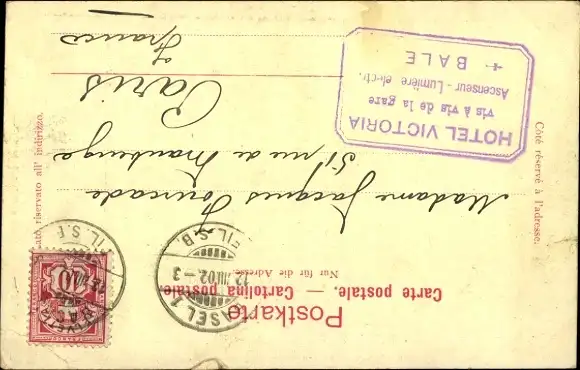 Postkarte
Carte postale. — Cartolina postale.
Nur für die Adresse.
Côté réservé à l'adresse.
riservato all' indirizzo.
BASEL 1
12.VIII.02 – 3
FIL.S.B.
FIL.S.B.
HELVETIA
10
FRANCO
Madame Jacques Fourcade
51 rue de
Paris
France
HOTEL VICTORIA
vis à vis de la gare
Ascenseur - Lumière electr.
BALE